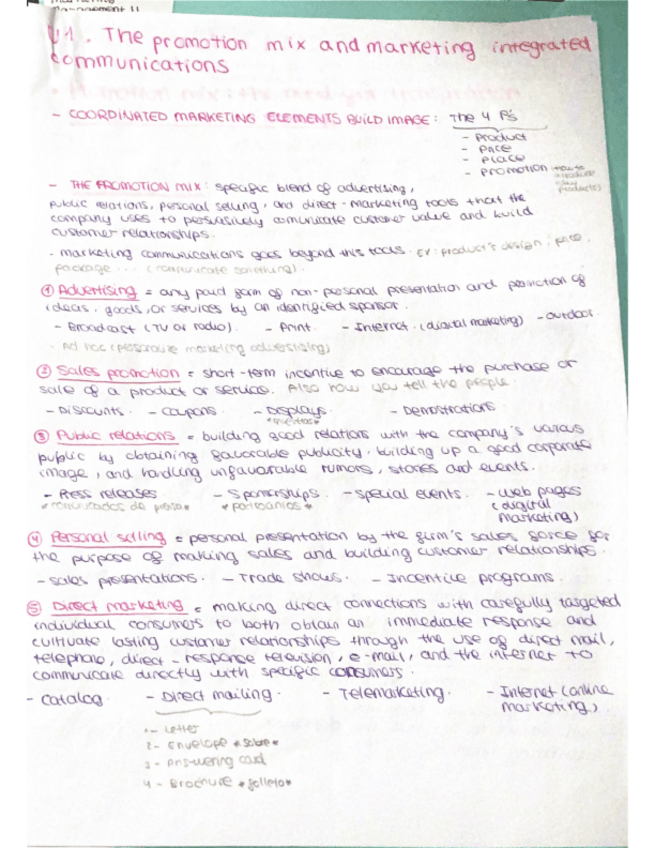 Management II
U1. The promotion mix and marketing integrated
communications
- COORDINATED MARKETING ELEMENTS BUILD IMAGE: The 4 P's
- Product
- Price
- Place
- Promotion
- THE PROMOTION MIX: specific blend of advertising,
public relations, personal selling, and direct-marketing tools that the
company uses to persuasively comunicate customer value and build
customer relationships.
· Marketing communications goes beyond this tools. Ex: product's design, price,
package... (communicate something).
① Advertising = any paid form of non-personal presentation and promotion of
ideas, goods, or services by an identified sponsor.
- Broadcast (TV or radio). - Print. - Internet. (digital marketing) - Outdoor.
② Sales promotion = short-term incentive to encourage the purchase or
sale of a product or service. Also how you tell the people.
- Discounts. - Coupons. - Displays - Demostrations
③ Public relations = building good relations with the company's various
public by obtaining favorable publicity, building up a good corporate
image, and handling unfavorable rumors, stories and events.
- Press releases - Sponsorships. - Special events. - Web pages
(digital
marketing)
④ Personal selling = personal presentation by the firm's sales force for
the purpose of making sales and building customer relationships.
- Sales presentations. - Trade shows. - Incentive programs.
⑤ Direct marketing = making direct connections with carefully targeted
individual consumers to both obtain an immediate response and
cultivate lasting customer relationships through the use of direct mail,
telephone, direct-response television, e-mail, and the internet to
communicate directly with specific consumers.
- Catalog. - Direct mailing. - Telemarketing. - Internet (online
marketing).
1- Letter
2- Envelope *sobre*
3- Answering card
4- Brochure *folleto*